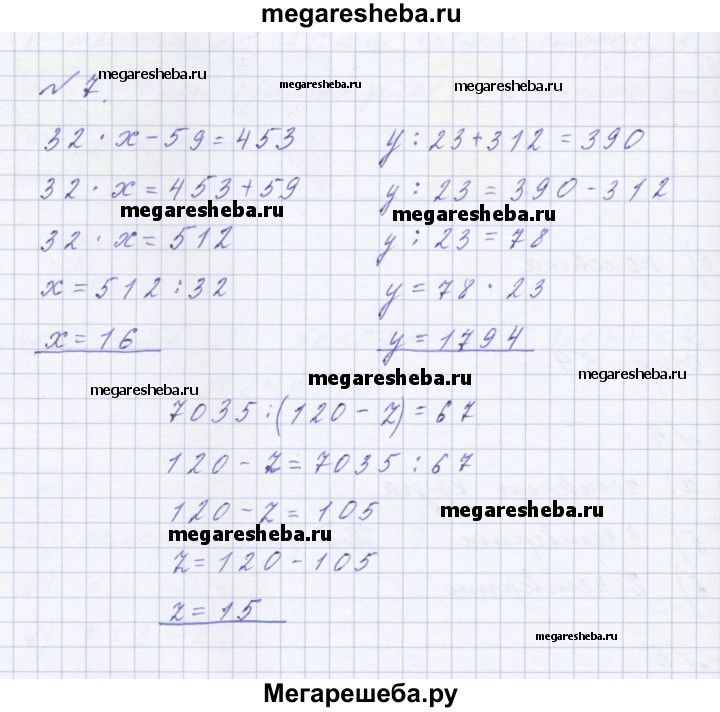 megaresheba.ru
№ 7.
megaresheba.ru
megaresheba.ru
megaresheba.ru
32 · x - 59 = 453
32 · x = 453 + 59
megaresheba.ru
32 · x = 512
x = 512 : 32
x = 16
y : 23 + 312 = 390
y : 23 = 390 - 312
megaresheba.ru
y : 23 = 78
y = 78 · 23
y = 1794
megaresheba.ru
megaresheba.ru
megaresheba.ru
7035 : (120 - z) = 67
120 - z = 7035 : 67
120 - z = 105
megaresheba.ru
megaresheba.ru
z = 120 - 105
z = 15
megaresheba.ru
Мегарешеба.ру